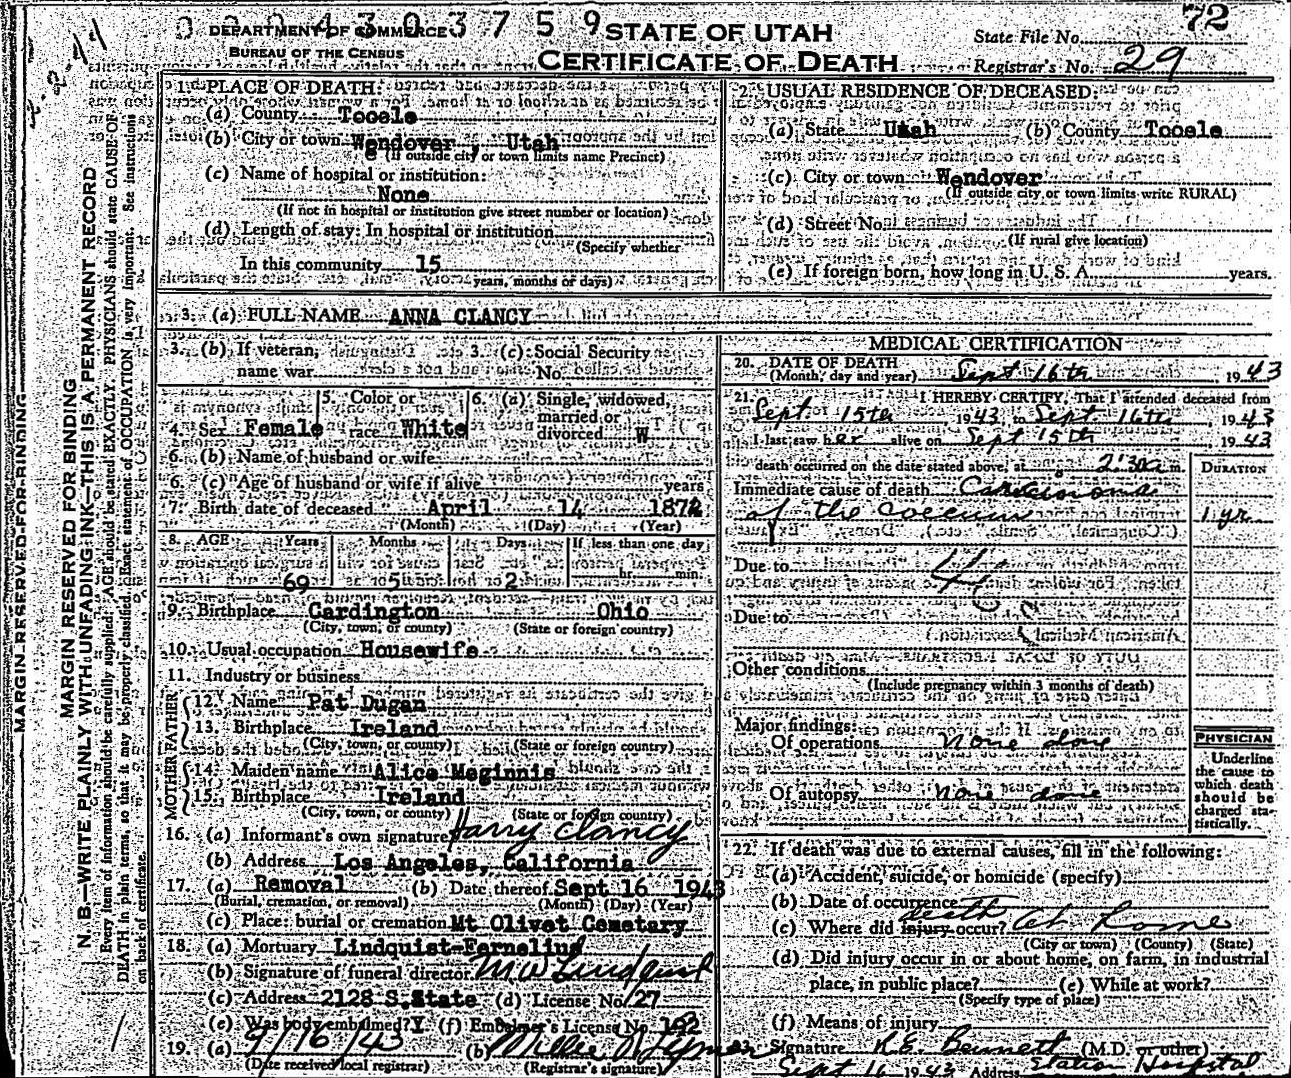 0 0 0 4 3 0 3 7 5 9
DEPARTMENT OF COMMERCE
BUREAU OF THE CENSUS
STATE OF UTAH
CERTIFICATE OF DEATH
72
State File No.
Registrar's No. 29
MARGIN RESERVED FOR BINDING
MARGIN RESERVED FOR BINDING
N. B.—WRITE PLAINLY WITH UNFADING INK—THIS IS A PERMANENT RECORD
Every item of information should be carefully supplied. AGE should be stated EXACTLY. PHYSICIANS should state CAUSE OF
DEATH in plain terms, so that it may be properly classified. Exact statement of OCCUPATION is very important. See instructions
on back of certificate.
1. PLACE OF DEATH:
(a) County Tooele
(b) City or town Wendover, Utah
(If outside city or town limits name Precinct)
(c) Name of hospital or institution:
None
(If not in hospital or institution give street number or location)
(d) Length of stay: In hospital or institution
(Specify whether
In this community 15
years, months or days)
2. USUAL RESIDENCE OF DECEASED:
(a) State Utah (b) County Tooele
(c) City or town Wendover
(If outside city or town limits write RURAL)
(d) Street No.
(If rural give location)
(e) If foreign born, how long in U. S. A. years.
3. (a) FULL NAME ANNA CLANCY
3. (b) If veteran, name war
3. (c) Social Security No.
4. Sex Female
5. Color or race White
6. (a) Single, widowed, married or divorced W
6. (b) Name of husband or wife
6. (c) Age of husband or wife if alive years
7. Birth date of deceased April 14 1874
(Month) (Day) (Year)
8. AGE Years Months Days If less than one day
69 5 2 hr. min.
9. Birthplace Cardington Ohio
(City, town, or county) (State or foreign country)
10. Usual occupation Housewife
11. Industry or business
FATHER
12. Name Pat Dugan
13. Birthplace Ireland
(City, town, or county) (State or foreign country)
MOTHER
14. Maiden name Alice Meginnis
15. Birthplace Ireland
(City, town, or county) (State or foreign country)
16. (a) Informant's own signature Harry Clancy
(b) Address Los Angeles, California
17. (a) Removal (b) Date thereof Sept 16 1943
(Burial, cremation, or removal) (Month) (Day) (Year)
(c) Place: burial or cremation Mt Olivet Cemetary
18. (a) Mortuary Lindquist-Fernelius
(b) Signature of funeral director M W Lindquist
(c) Address 2128 S.State (d) License No. 127
(e) Was body embalmed? Y (f) Embalmer's License No. 192
19. (a) 9/16/43 (b) Millie
(Date received local registrar) (Registrar's signature)
MEDICAL CERTIFICATION
20. DATE OF DEATH
(Month, day and year) Sept 16th, 1943
21. I HEREBY CERTIFY, That I attended deceased from
Sept. 15th 1943, to Sept 16th, 1943
I last saw her alive on Sept 15th 1943
death occurred on the date stated above, at 2:30a m.
DURATION
Immediate cause of death Carcinoma
of the Coecum 1 yr.
Due to
Due to
Other conditions
(Include pregnancy within 3 months of death)
Major findings:
Of operations none done
Of autopsy none done
PHYSICIAN
Underline
the cause to
which death
should be
charged sta-
tistically.
22. If death was due to external causes, fill in the following:
(a) Accident, suicide, or homicide (specify)
(b) Date of occurrence
death
(c) Where did injury occur? At Home
(City or town) (County) (State)
(d) Did injury occur in or about home, on farm, in industrial
place, in public place? (e) While at work?
(Specify type of place)
(f) Means of injury
23. Signature R.E. Bennett (M.D. or other)
Sept 16 1943 Address Station Hospital